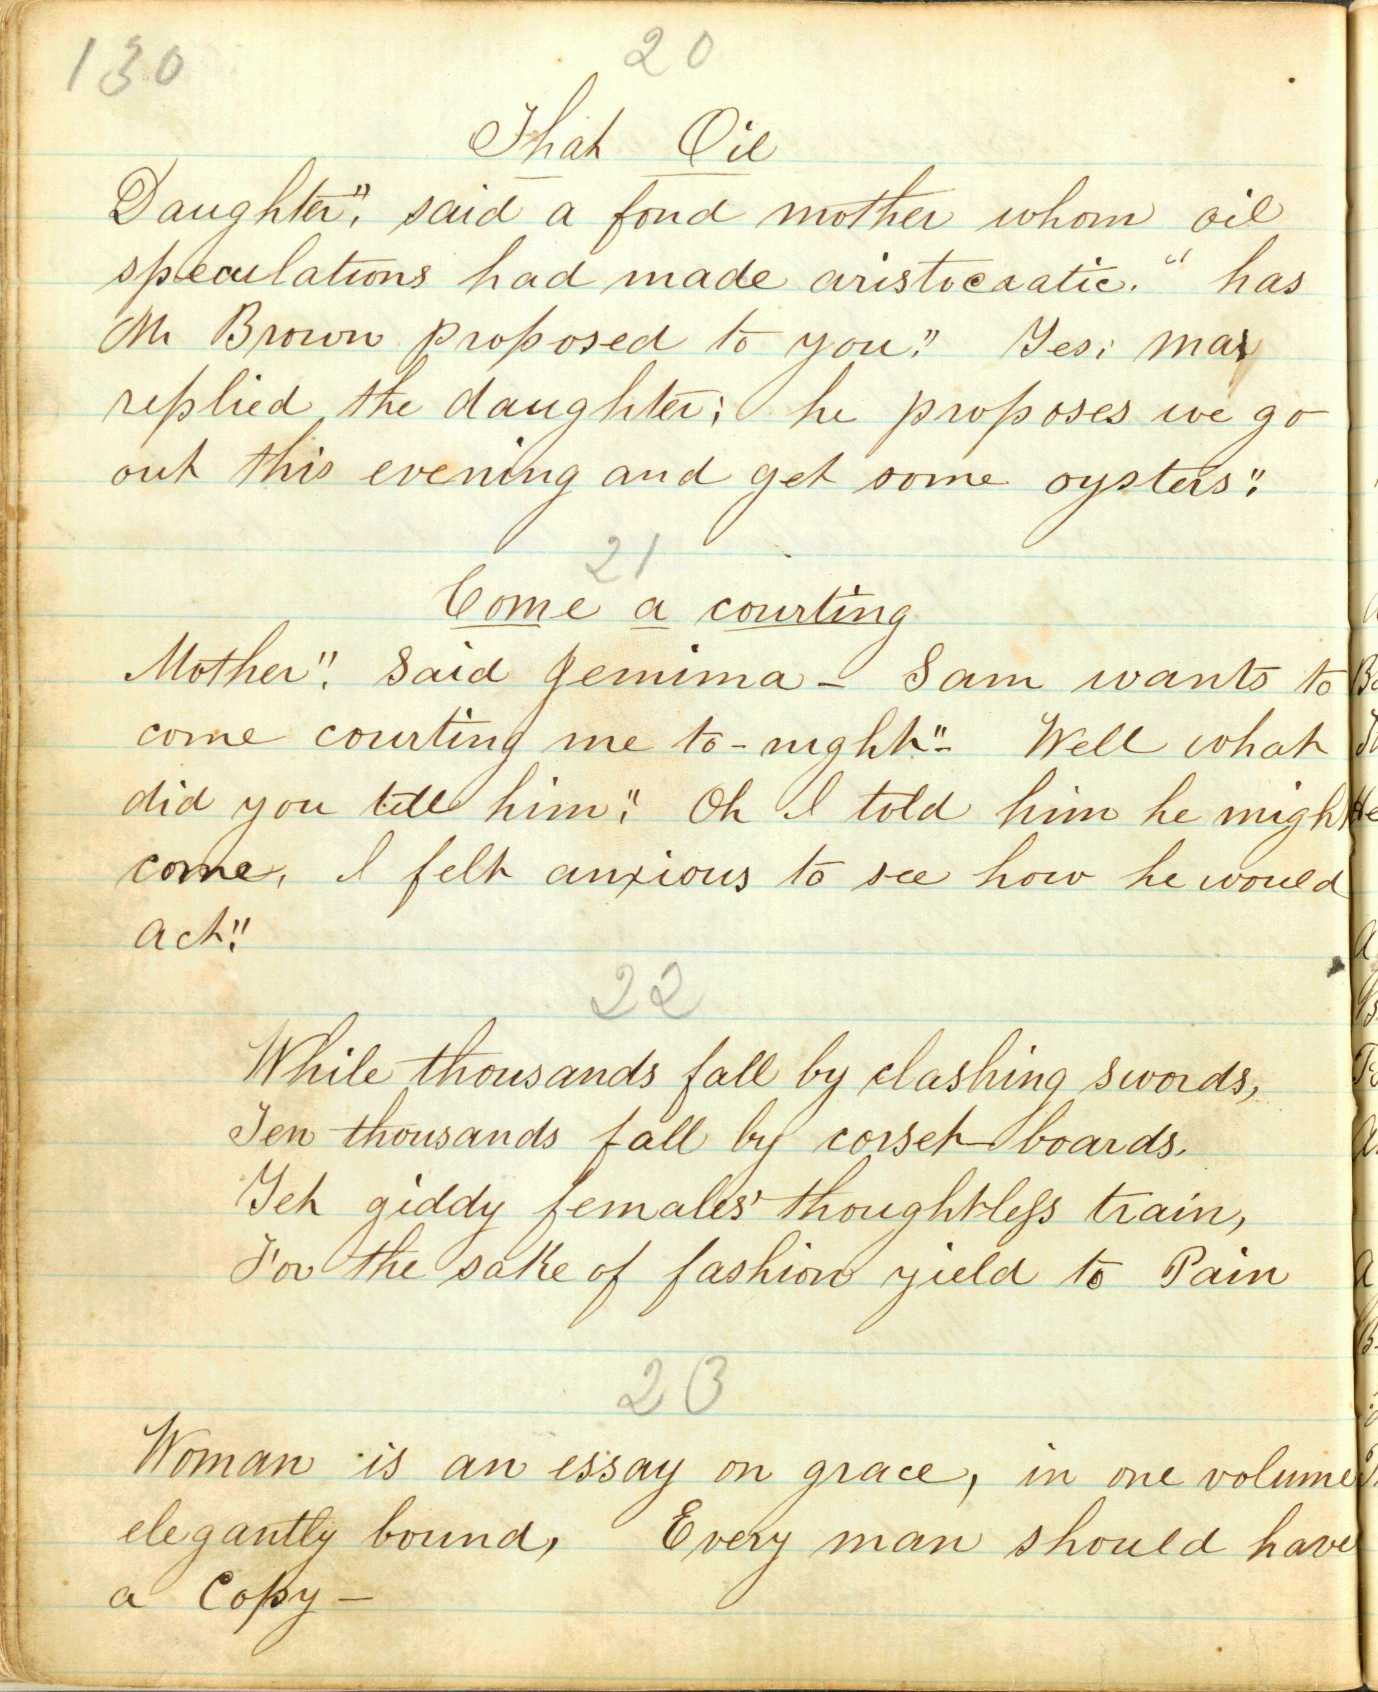 130
20
That Oil
Daughter". said a fond mother whom oil
speculations had made aristocratic. " has
Mr Brown proposed to you." Yes; ma
replied the daughter; he proposes we go
out this evening and get some oysters".
21
Come a courting
Mother". Said Jemima - Sam wants to
come courting me to-night"- Well what
did you tell him". Oh I told him he might
come. I felt anxious to see how he would
act".
22
While thousands fall by clashing swords,
Ten thousands fall by corset boards.
Yet giddy females' thoughtless train,
For the sake of fashion yield to Pain
23
Woman is an essay on grace, in one volume
elegantly bound, Every man should have
a Copy -